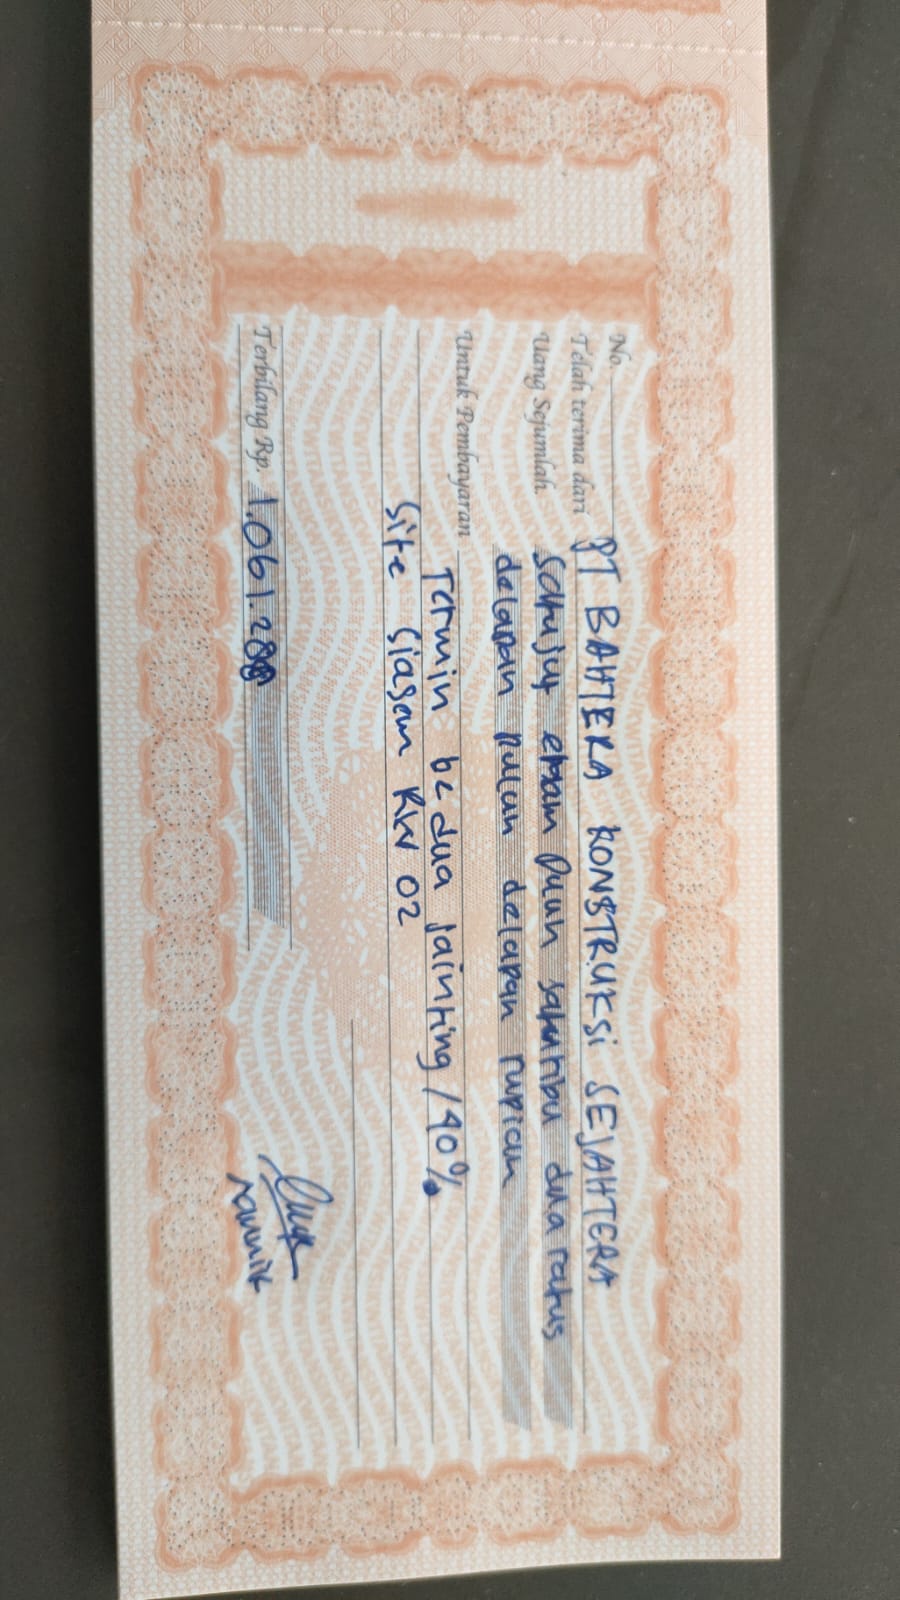 No.
Telah terima dari PT BAHTERA KONSTRUKSi SEJAHTERA
Uang Sejumlah satujuy enam puluh satu ribu dua ratus
delapan puluh delapan rupiah
Untuk Pembayaran Termin ke dua jainting / 40%
Site Siagam RW 02
Terbilang Rp. 1.061.288